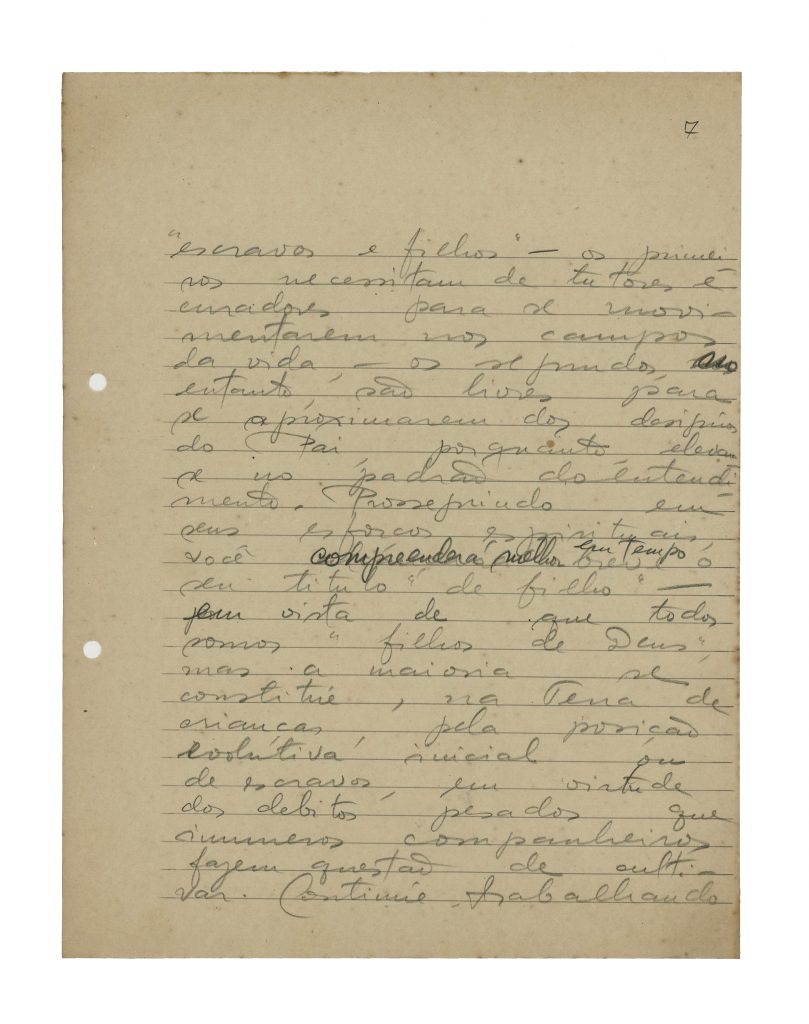 7
"escravos e filhos" — os primei
ros necessitam de tutores e
curadores para se movi-
mentarem nos campos
da vida, — os segundos, no
entanto, são livres para
se aproximarem dos designios
do Pai, porquanto, elevam
se no padrão do entendi
mento. Prosseguindo em
seus esforços espirituais,
você compreenderá melhor em tempo breve o
seu titulo "de filho" —
em vista de que todos
somos "filhos de Deus",
mas a maioria se
constitúe, na Terra de
crianças, pela posição
evolutiva inicial ou
de escravos, em virtude
dos debitos pesados que
inumeros companheiros
fazem questão de culti-
var. Continúe trabalhando